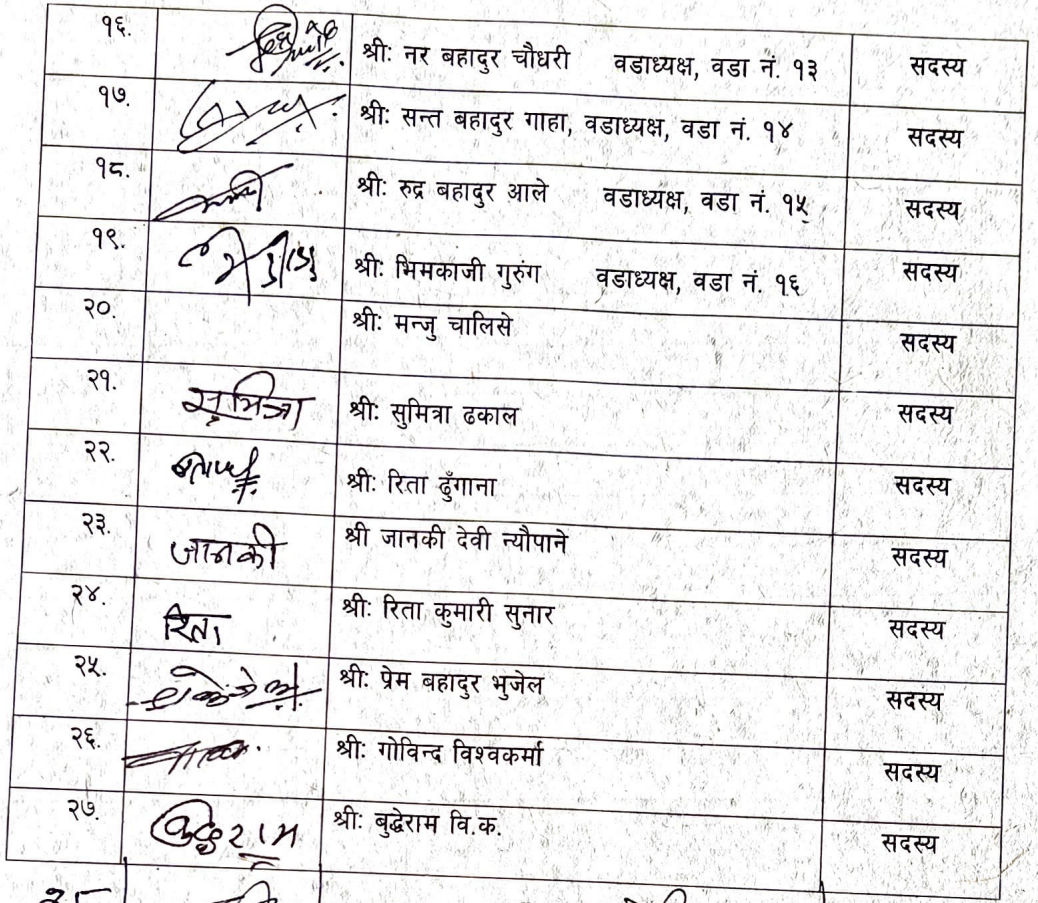 १६. श्री: नर बहादुर चौधरी वडाध्यक्ष, वडा नं. १३ सदस्य
१७. श्री: सन्त बहादुर गाहा, वडाध्यक्ष, वडा नं. १४ सदस्य
१८. श्री: रुद्र बहादुर आले वडाध्यक्ष, वडा नं. १५ सदस्य
१९. श्री: भिमकाजी गुरुंग वडाध्यक्ष, वडा नं. १६ सदस्य
२०. श्री: मन्जु चालिसे सदस्य
२१. सुमित्रा श्री: सुमित्रा ढकाल सदस्य
२२. श्री: रिता ढुँगाना सदस्य
२३. जानकी श्री जानकी देवी न्यौपाने सदस्य
२४. रिता श्री: रिता कुमारी सुनार सदस्य
२५. श्री: प्रेम बहादुर भुजेल सदस्य
२६. श्री: गोविन्द विश्वकर्मा सदस्य
२७. बुद्धेराम श्री: बुद्धेराम वि.क. सदस्य